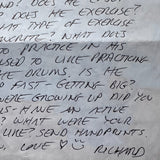 AND? DOES HE
DOES ME EXERCISE?
WHAT TYPE OF EXERCISE
FAVOURITE? WHAT DOES
TO PRACTICE IN HIS
USED TO LIKE PRACTICING
THE DRUMS. IS HE
SO FAST - GETTING BIG?
WERE GROWING UP DID YOU
RS - MINE AN ACTIVE
? WHAT WERE YOUR
LIKE? SEND HANDPRINTS,
N, LOVE RICHARD